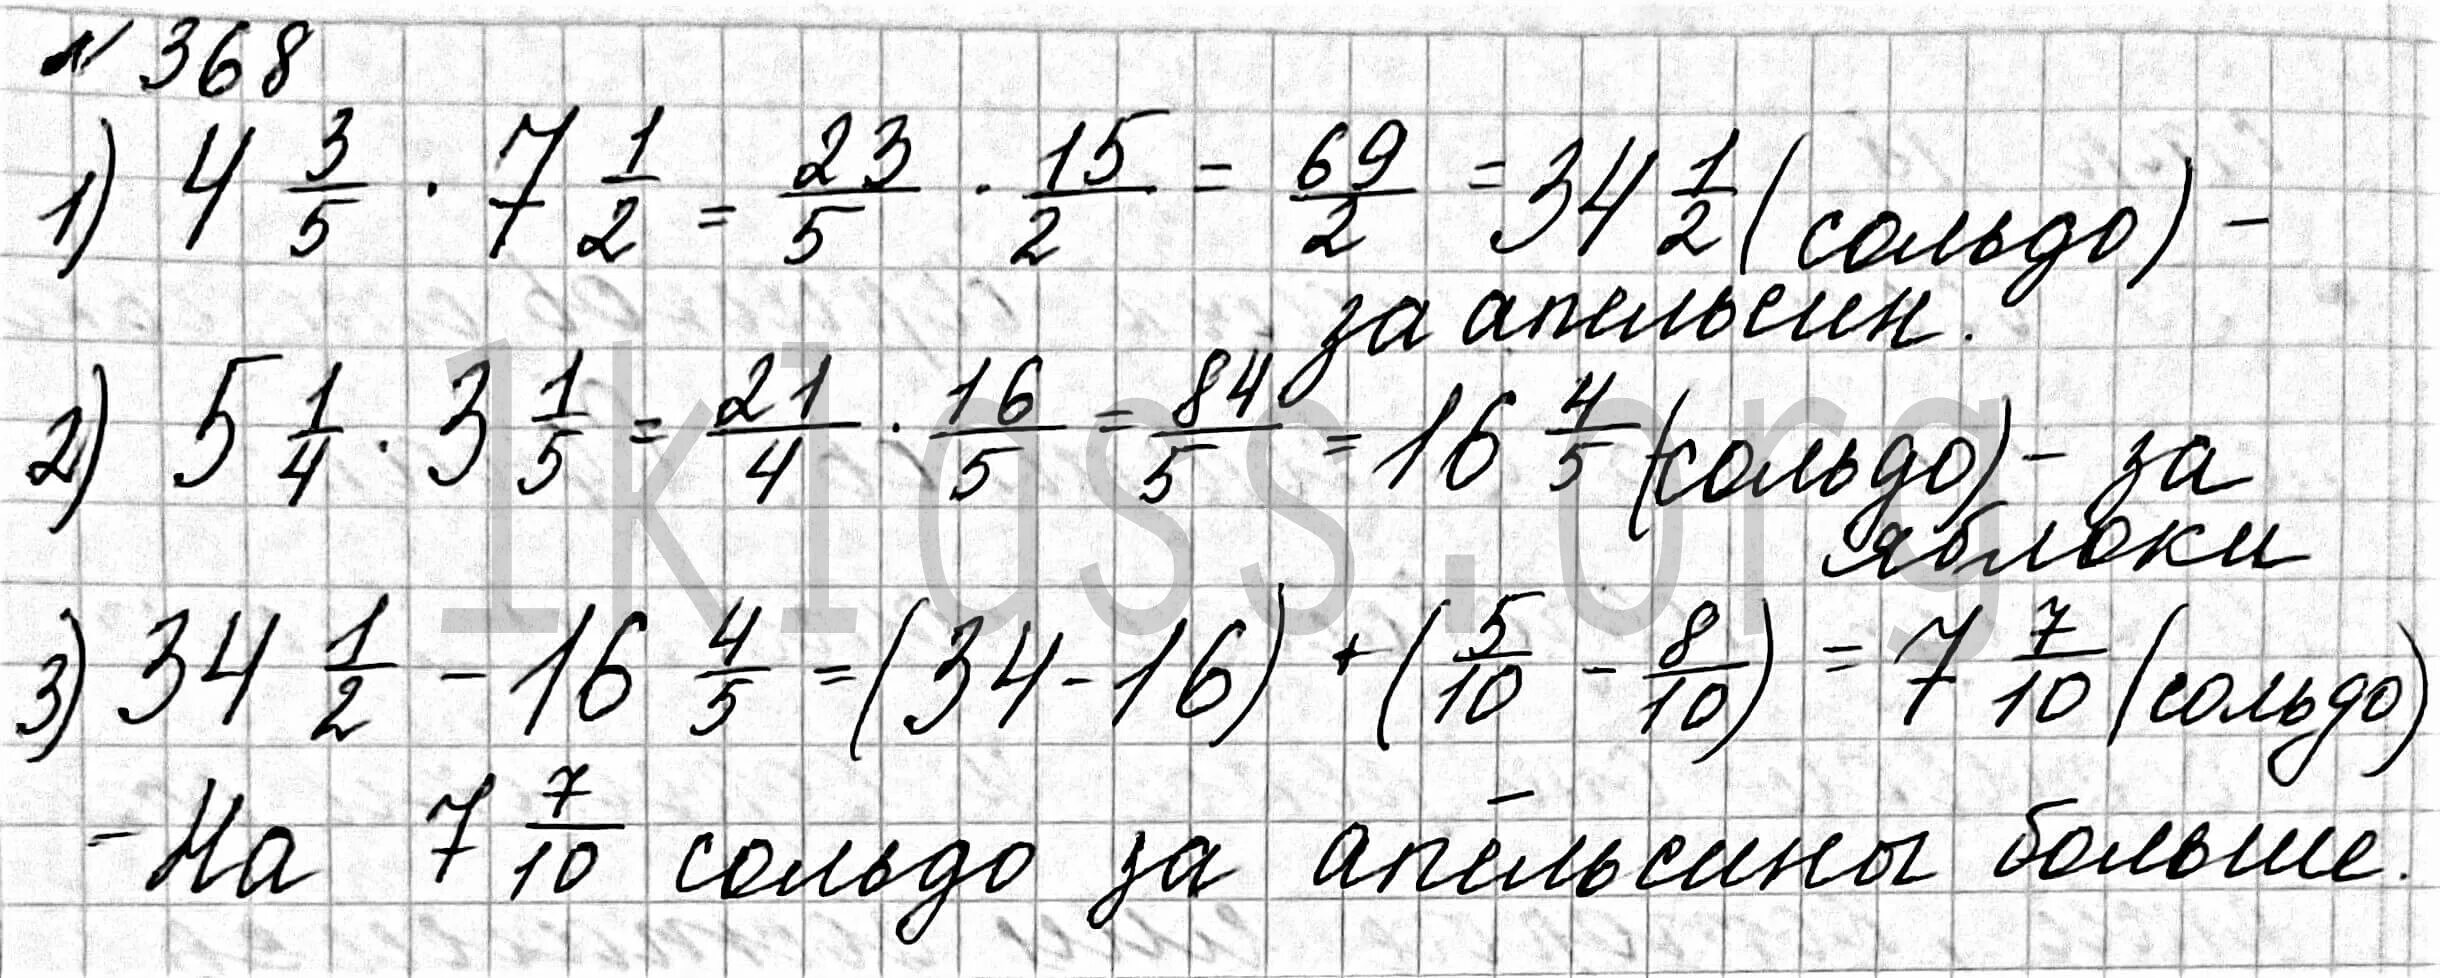 № 368
1) 4 3/5 · 7 1/2 = 23/5 · 15/2 = 69/2 = 34 1/2 (сольдо) –
за апельсин.
2) 5 1/4 · 3 1/5 = 21/4 · 16/5 = 84/5 = 16 4/5 (сольдо) – за
яблоки
3) 34 1/2 – 16 4/5 = (34 - 16) + (5/10 - 8/10) = 7 7/10 (сольдо)
– На 7 7/10 сольдо за апельсины больше.
1klass.org